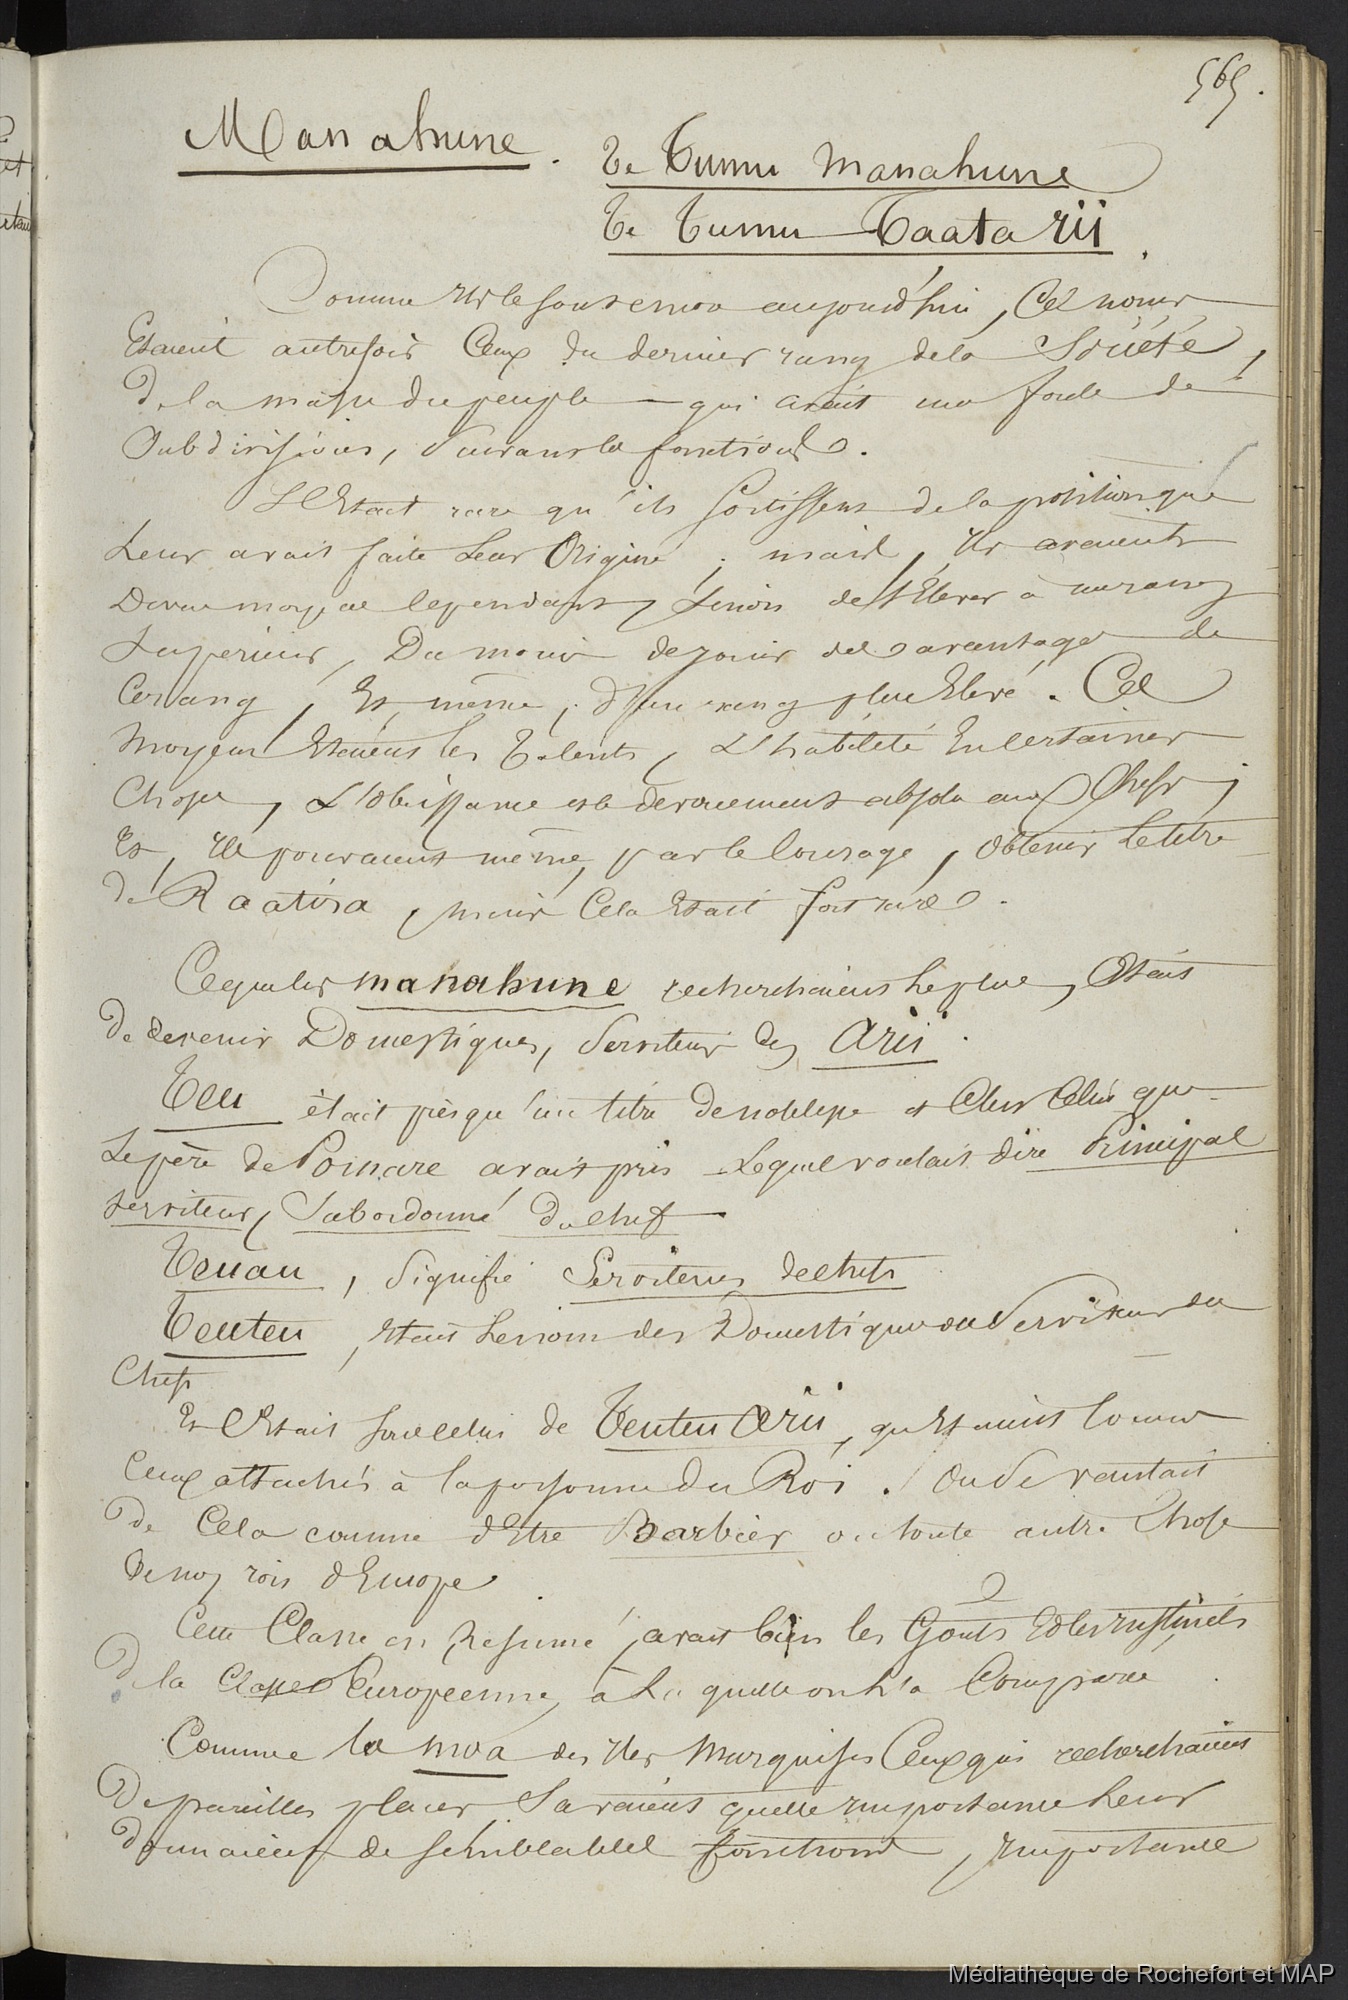 565.
Manahune. Te Tumu Manahune
Te Tumu Taata rii.
Comme ils le sont encore aujourd'hui, Ces noms
Etaient autrefois Ceux du dernier rang de la Société,
De la masse du peuple — qui avait une foule de
Subdivisions, Suivant les fonctions.
Il Etait rare qu'ils sortissent de la position que
Leur avait faite Leur Origine ; mais, ils avaient
Divers moyens Cependant, Sinon de s'Elever à un rang
Supérieur, Du moins de jouir des avantages de
Ce rang, Et même, d'un rang plus Elevé. Ces
Moyens Etaient les Talents, L'habileté En certaines
Choses, L'Obeissance et le devouement absolu aux Chefs ;
Et, ils pouvaient même, par le Courage, Obtenir le titre
de Raatira, mais Cela Etait fort rare.
Ce que les manahune recherchaient le plus, Etait
De devenir Domestiques, Serviteurs des Arii.
Teu était presqu'un titre de noblesse et C'est Celui que
Le père de Pomare avait pris Lequel voulait dire Principal
serviteur, Subordonné du chef
Teuau, Signifie Serviteurs de chefs
Teuteu, Etait Le nom des Domestiques ou Serviteurs du
Chefs
Et C'Etait sous celui de Teuteu Arii, qu'Etaient Connus
Ceux attachés à la personne du Roi. On Se vantait
De Cela comme d'Etre Barbier ou toute autre Chose
De nos rois d'Europe
Cette Classe en Resumé, avait bien les Gouts Et les instincts
De la Classe Européenne, à La quelle on l'a Comparée.
Comme les moa des Iles Marquises Ceux qui recherchaient
De pareilles places Savaient quelle importance Leur
Donnaient de semblables fonctions, importance
Médiathèque de Rochefort et MAP